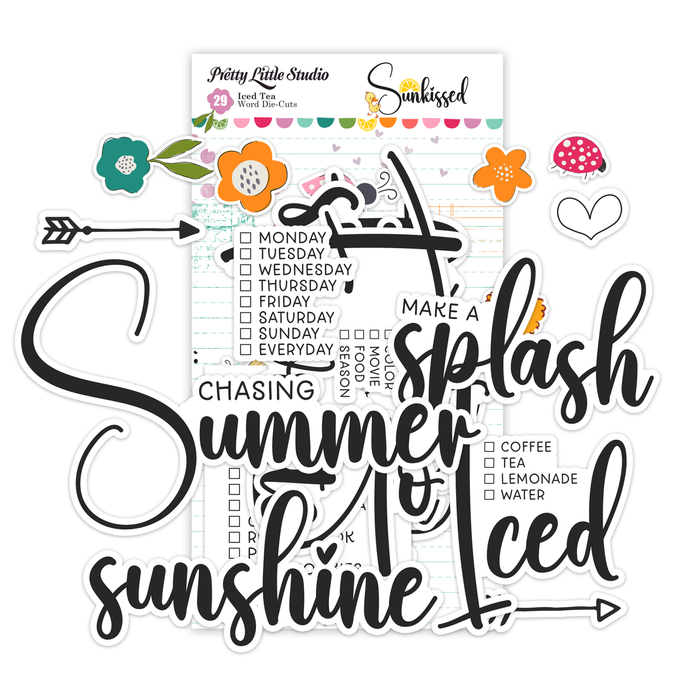 Pretty Little Studio
29
Iced Tea
Word Die-Cuts
Sunkissed
MONDAY
TUESDAY
WEDNESDAY
THURSDAY
FRIDAY
SATURDAY
SUNDAY
EVERYDAY
SEASON
FOOD
MOVIE
COLOR
MAKE A
splash
CHASING
Summer
COFFEE
TEA
LEMONADE
WATER
Iced
sunshine